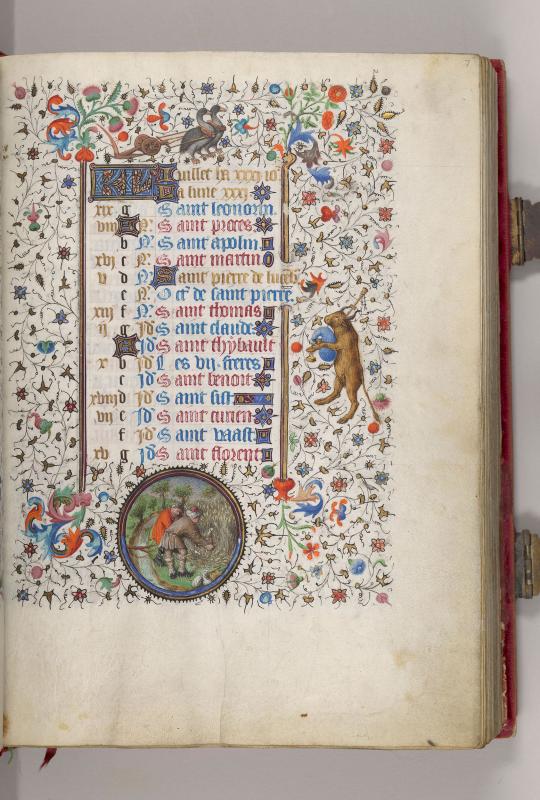 KL Juillet ha xxxi io
la lune xxx
xix g Saint leonorin
viii A N. Saint proces
b N. Saint apolin
xvi c N. Saint martin
v d N. Saint pierre de
e N. Oct de saint pierre
xiii f N. Saint thomas
ii g Id Saint claude
A Id Saint thybault
x b Id Les vii freres
c Id Saint benoit
xviii d Id Saint sist
vii e Id Saint turien
f Id Saint vaast
xv g Id Saint florent